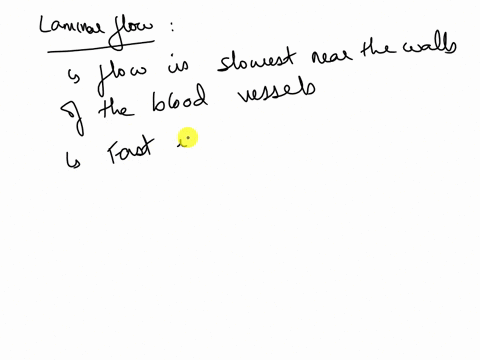 Laminar flow :
↳ flow is slowest near the walls
of the blood vessels
↳ Fast i